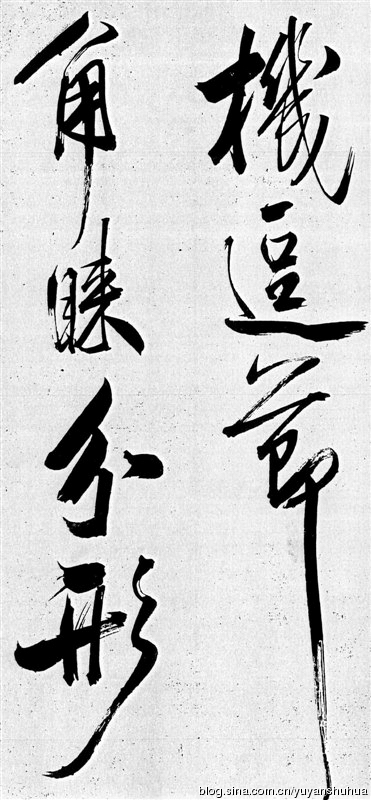 機逗節
角睞分形
blog.sina.com.cn/yuyanshuhua